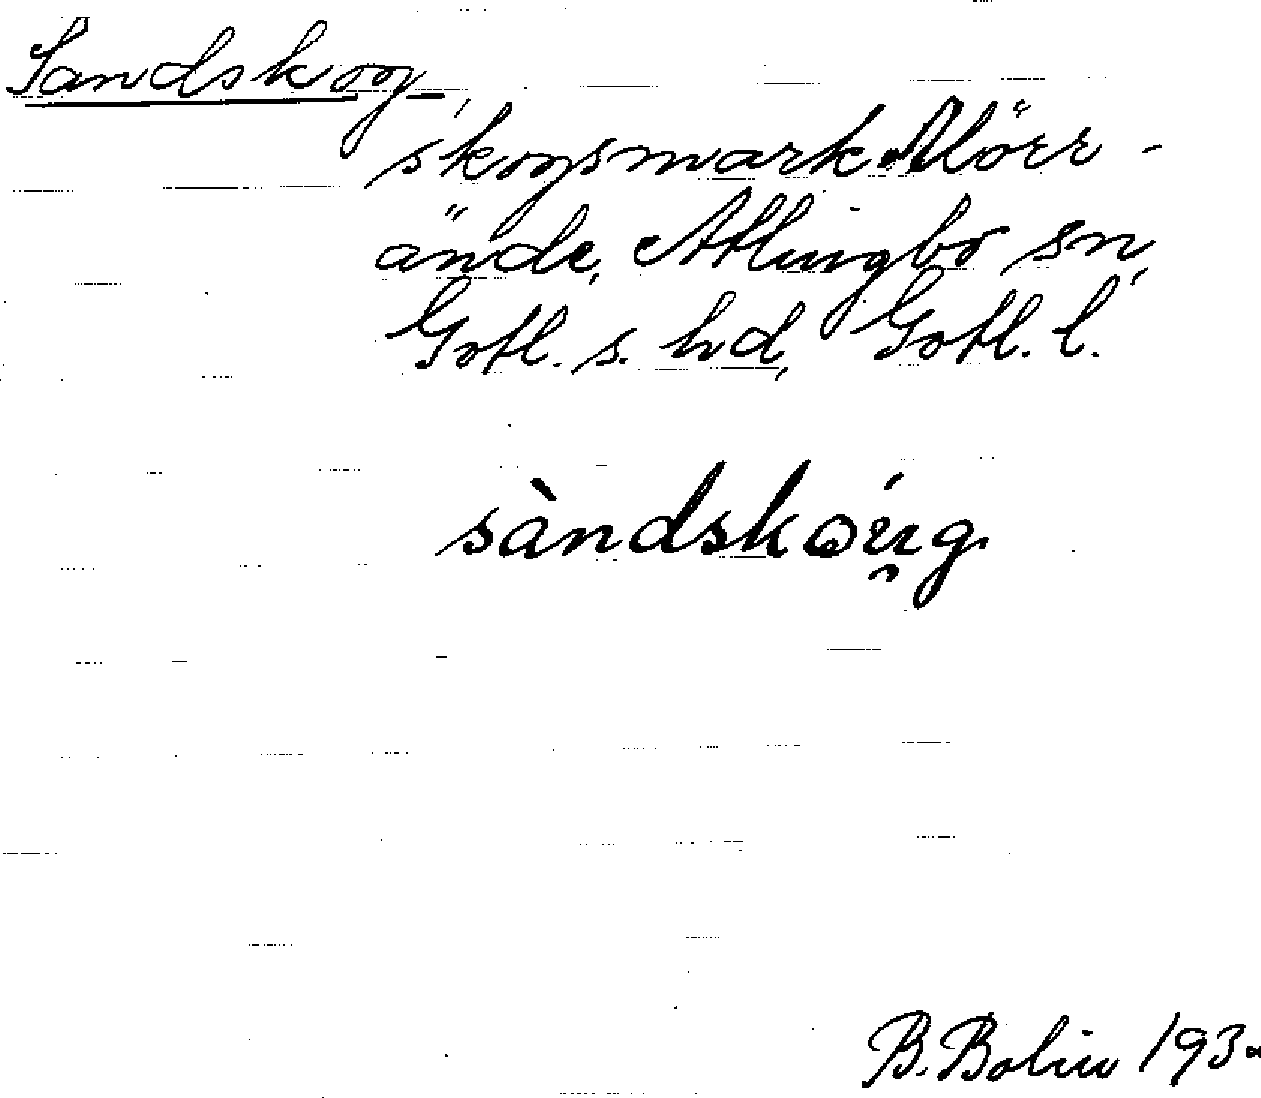 Sandskog,
skogsmark Mörr-
ände, Atlingbo sn,
Gotl. s. hd, Gotl. l.
sàndskóu̯g.
B. Bolin 193